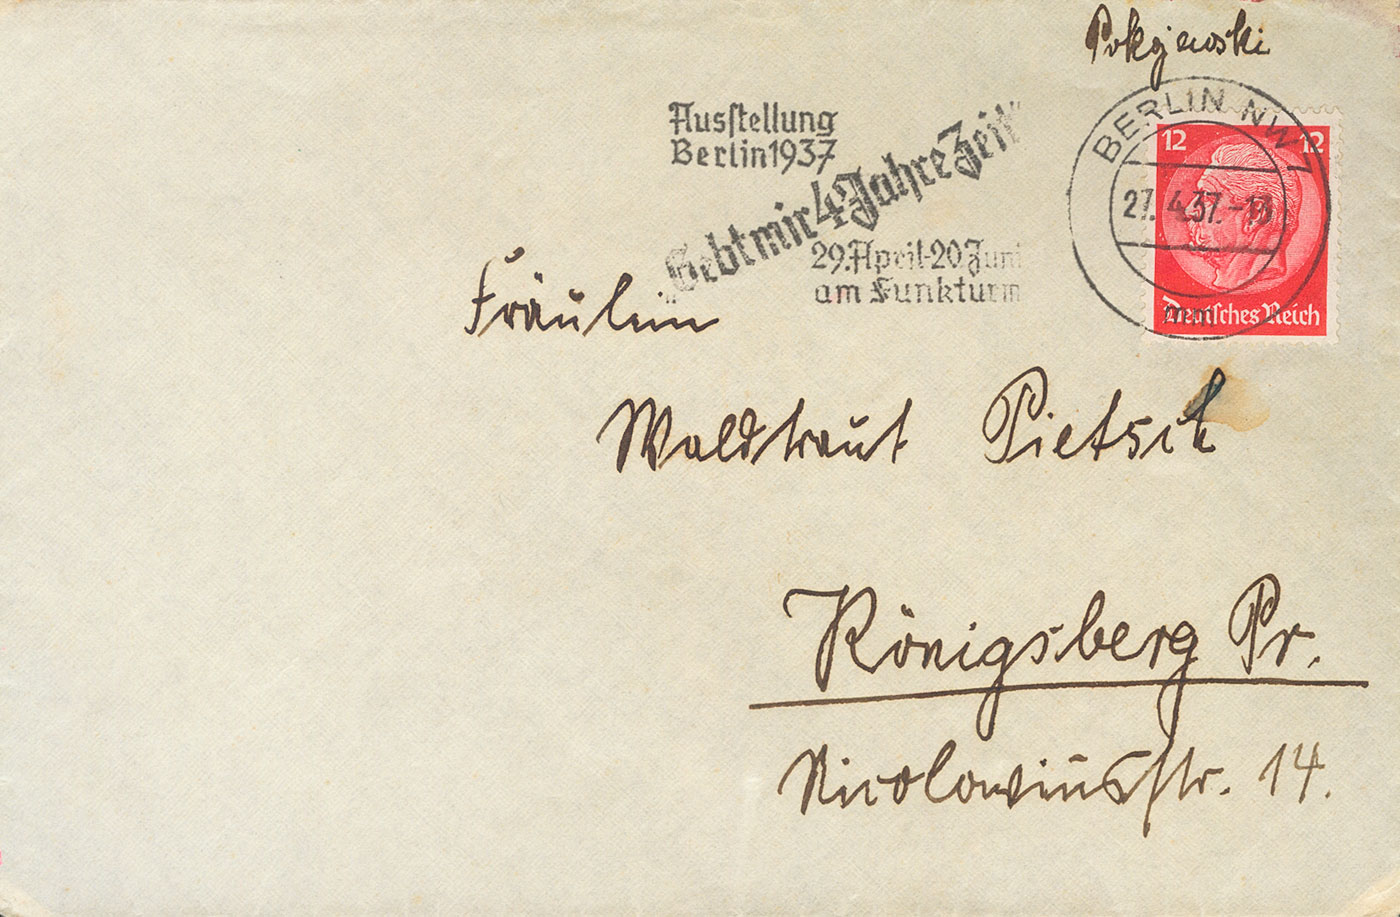 Pokzewski
Ausstellung
Berlin 1937
"Gebt mir 4 Jahre Zeit"
29. April-20 Juni
am Funkturm
BERLIN NW 7
27.4.37.-13
12 12
Deutsches Reich
Fräulein
Waldtraut Pietsch
Königsberg Pr.
Nicoloviusstr. 14.